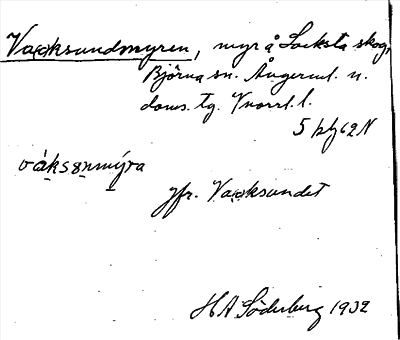 Vaoksundmyren, myr å Locksta skog,
Björna sn. Ångerml. n.
doms. tg. Vnorrl. l.
5 htg 62 N
våksønmýra
jfr. Vaoksundet
H A Söderberg 1932